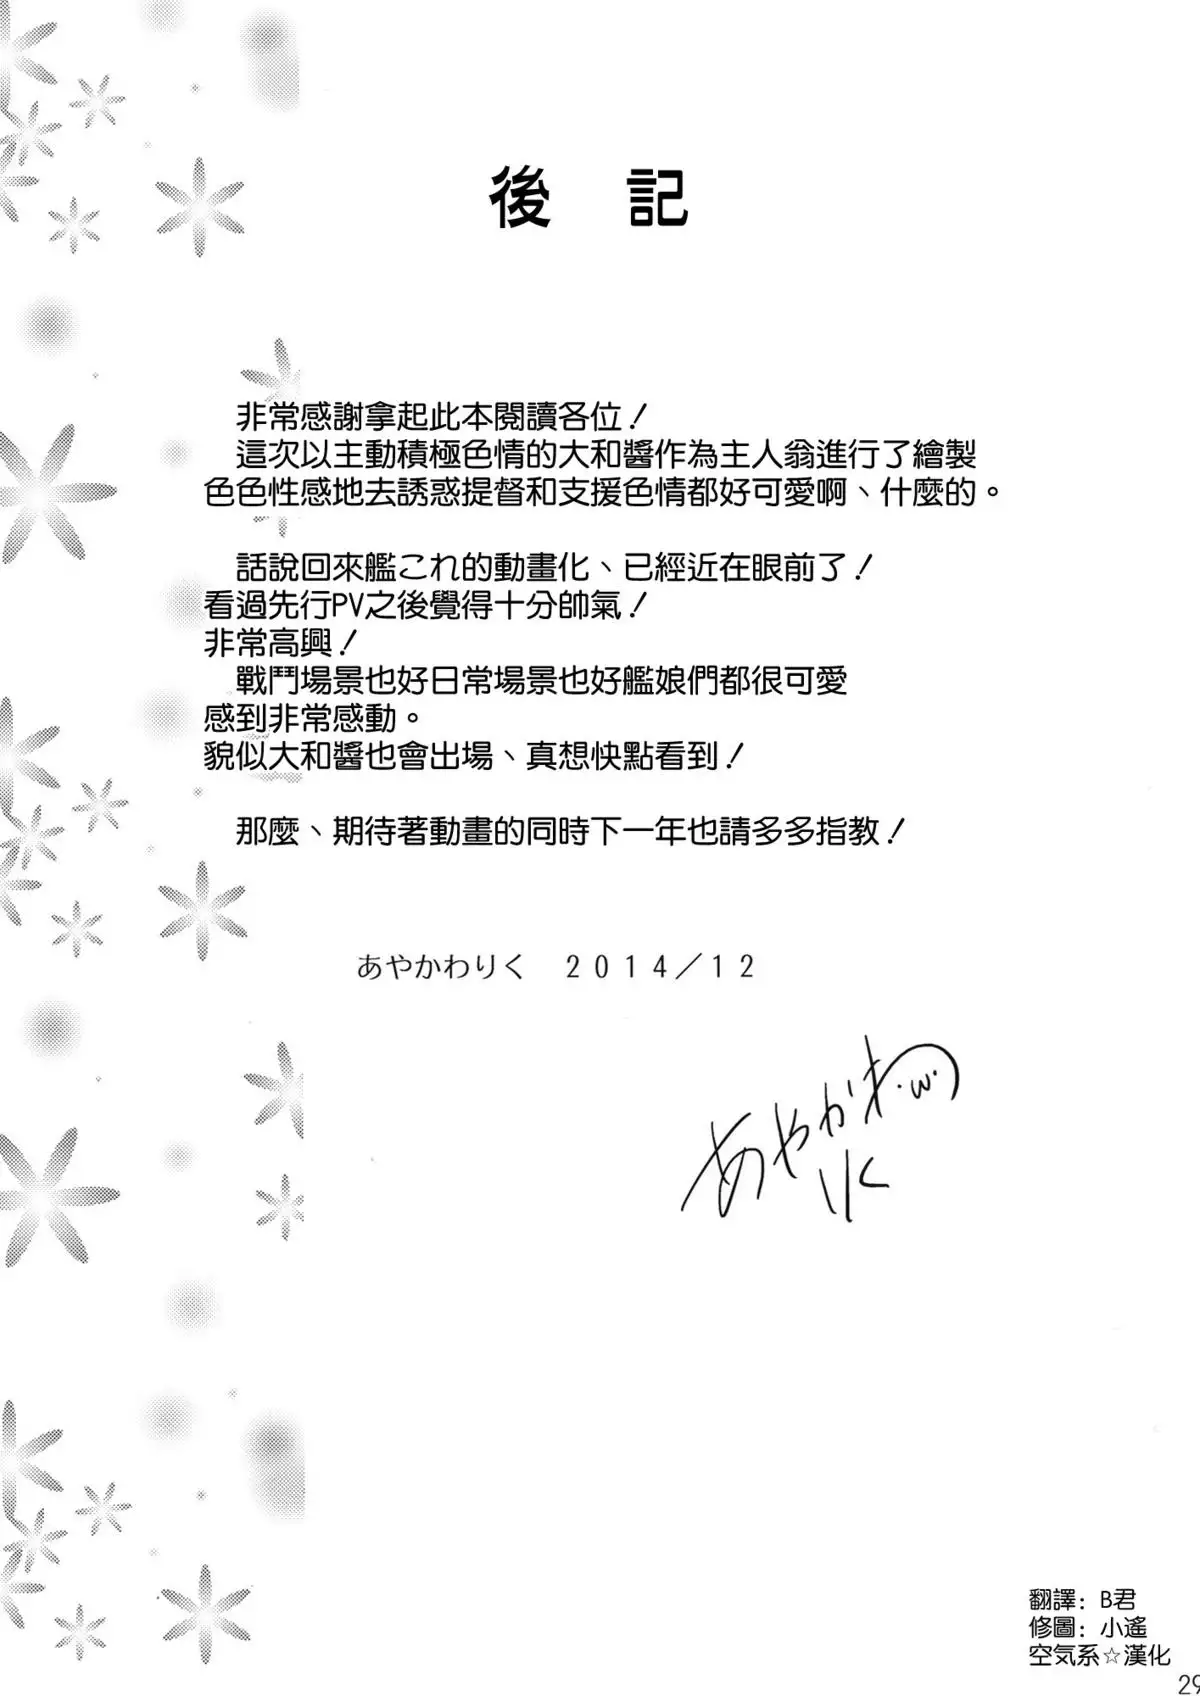 後　記
非常感謝拿起此本閱讀各位！
這次以主動積極色情的大和醬作為主人翁進行了繪製
色色性感地去誘惑提督和支援色情都好可愛啊、什麼的。
話說回來艦これ的動畫化、已經近在眼前了！
看過先行PV之後覺得十分帥氣！
非常高興！
戰鬥場景也好日常場景也好艦娘們都很可愛
感到非常感動。
貌似大和醬也會出場、真想快點看到！
那麼、期待著動畫的同時下一年也請多多指教！
あやかわりく　２０１４／１２
あやかわ
りく
翻譯: B君
修圖: 小遙
空気系☆漢化
29